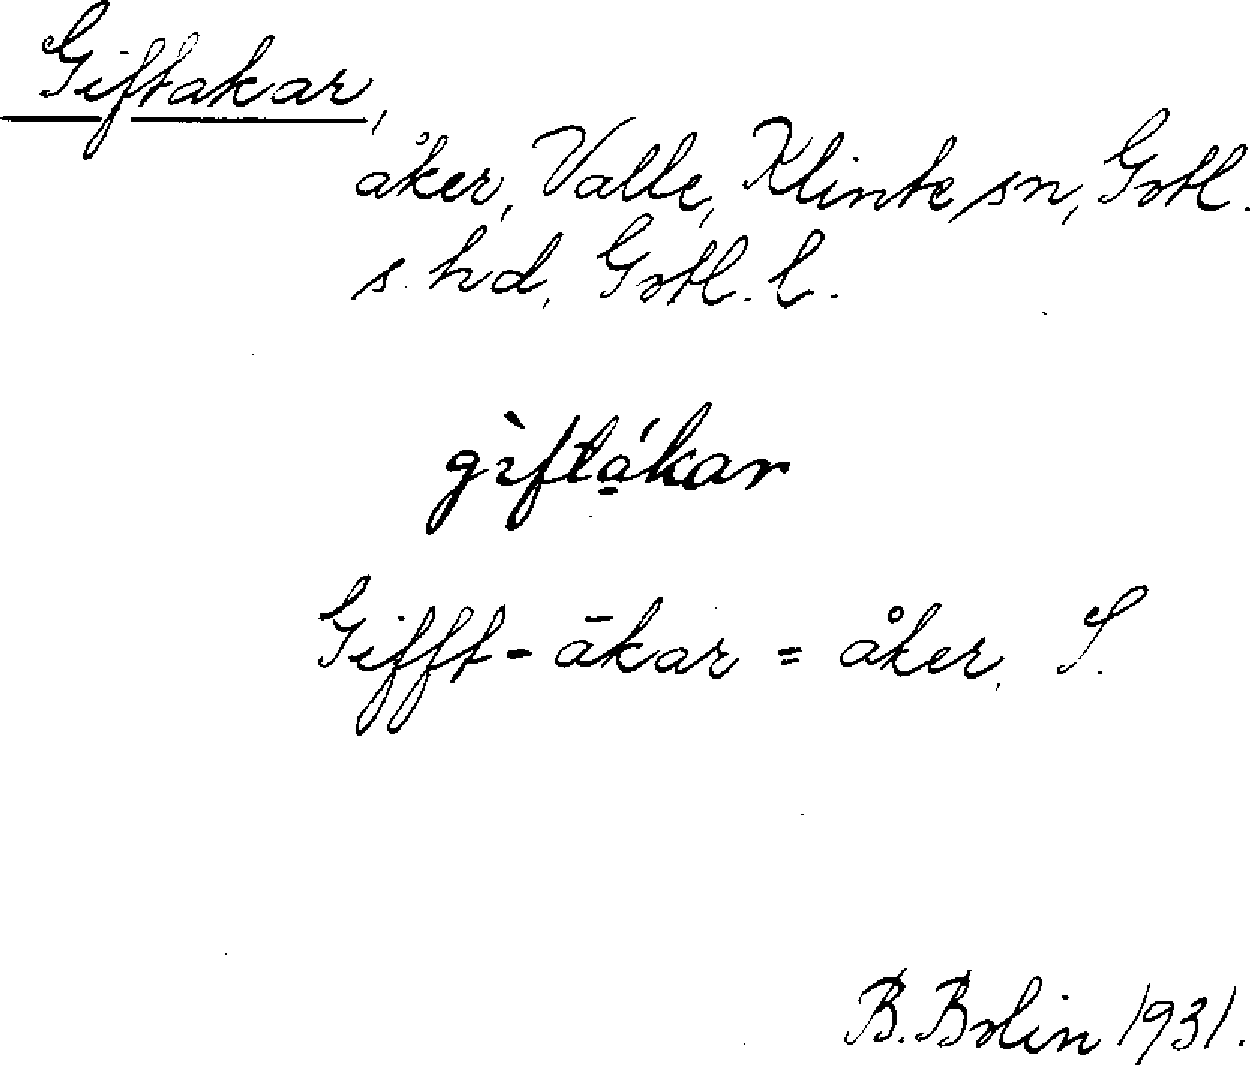 Giftakar,
åker, Valle, Klinte sn, Gotl.
s. hd, Gotl. l.
gìftá̱kar
Gifft-ākar = åker. S.
B. Bolin 1931.